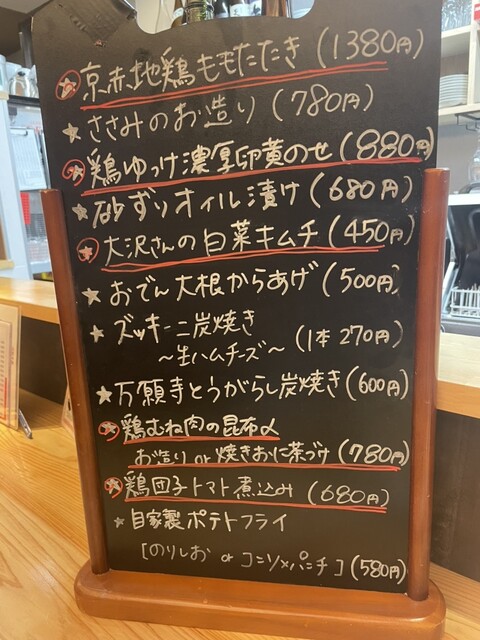 ★京赤地鶏ももたたき(1380円)
★ささみのお造り(780円)
★鶏ゆっけ濃厚卵黄のせ(880円)
★砂ずりオイル漬け(680円)
★大沢さんの白菜キムチ(450円)
★おでん大根からあげ(500円)
★ズッキーニ炭焼き
～生ハムチーズ～(1本270円)
★万願寺とうがらし炭焼き(600円)
★鶏むね肉の昆布〆
お造りor焼きおに茶づけ(780円)
★鶏団子トマト煮込み(680円)
★自家製ポテトフライ
[のりしおorコンソメパンチ](580円)